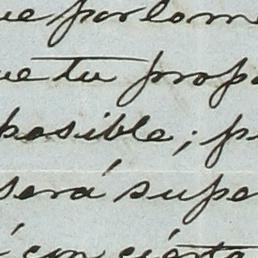 ue por lo me
ue tu propo
posible; p
será supe
con cierta